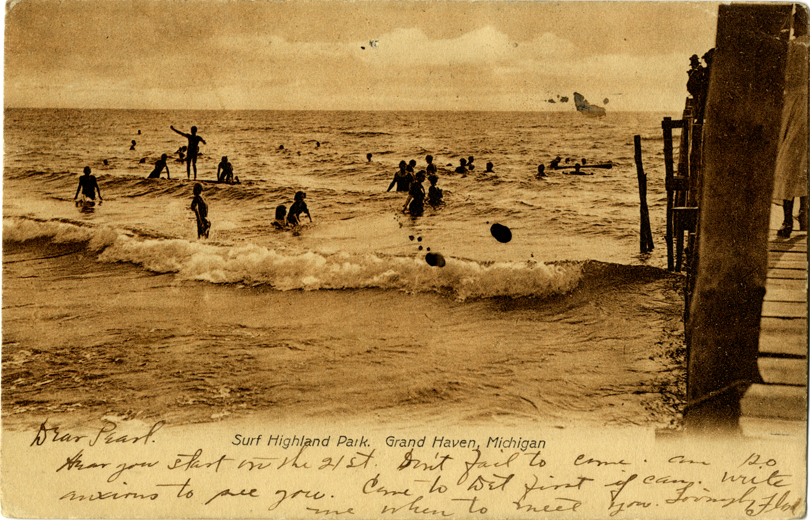 Dear Pearl.
Surf Highland Park. Grand Haven, Michigan
Hear you start on the 21st. Don't fail to come. am so
anxious to see you. Come to Det first if can, write
me when to meet you. Lovingly Flo